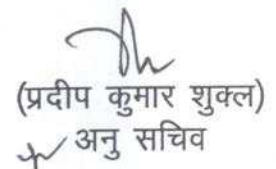 (प्रदीप कुमार शुक्ल)
अनु सचिव